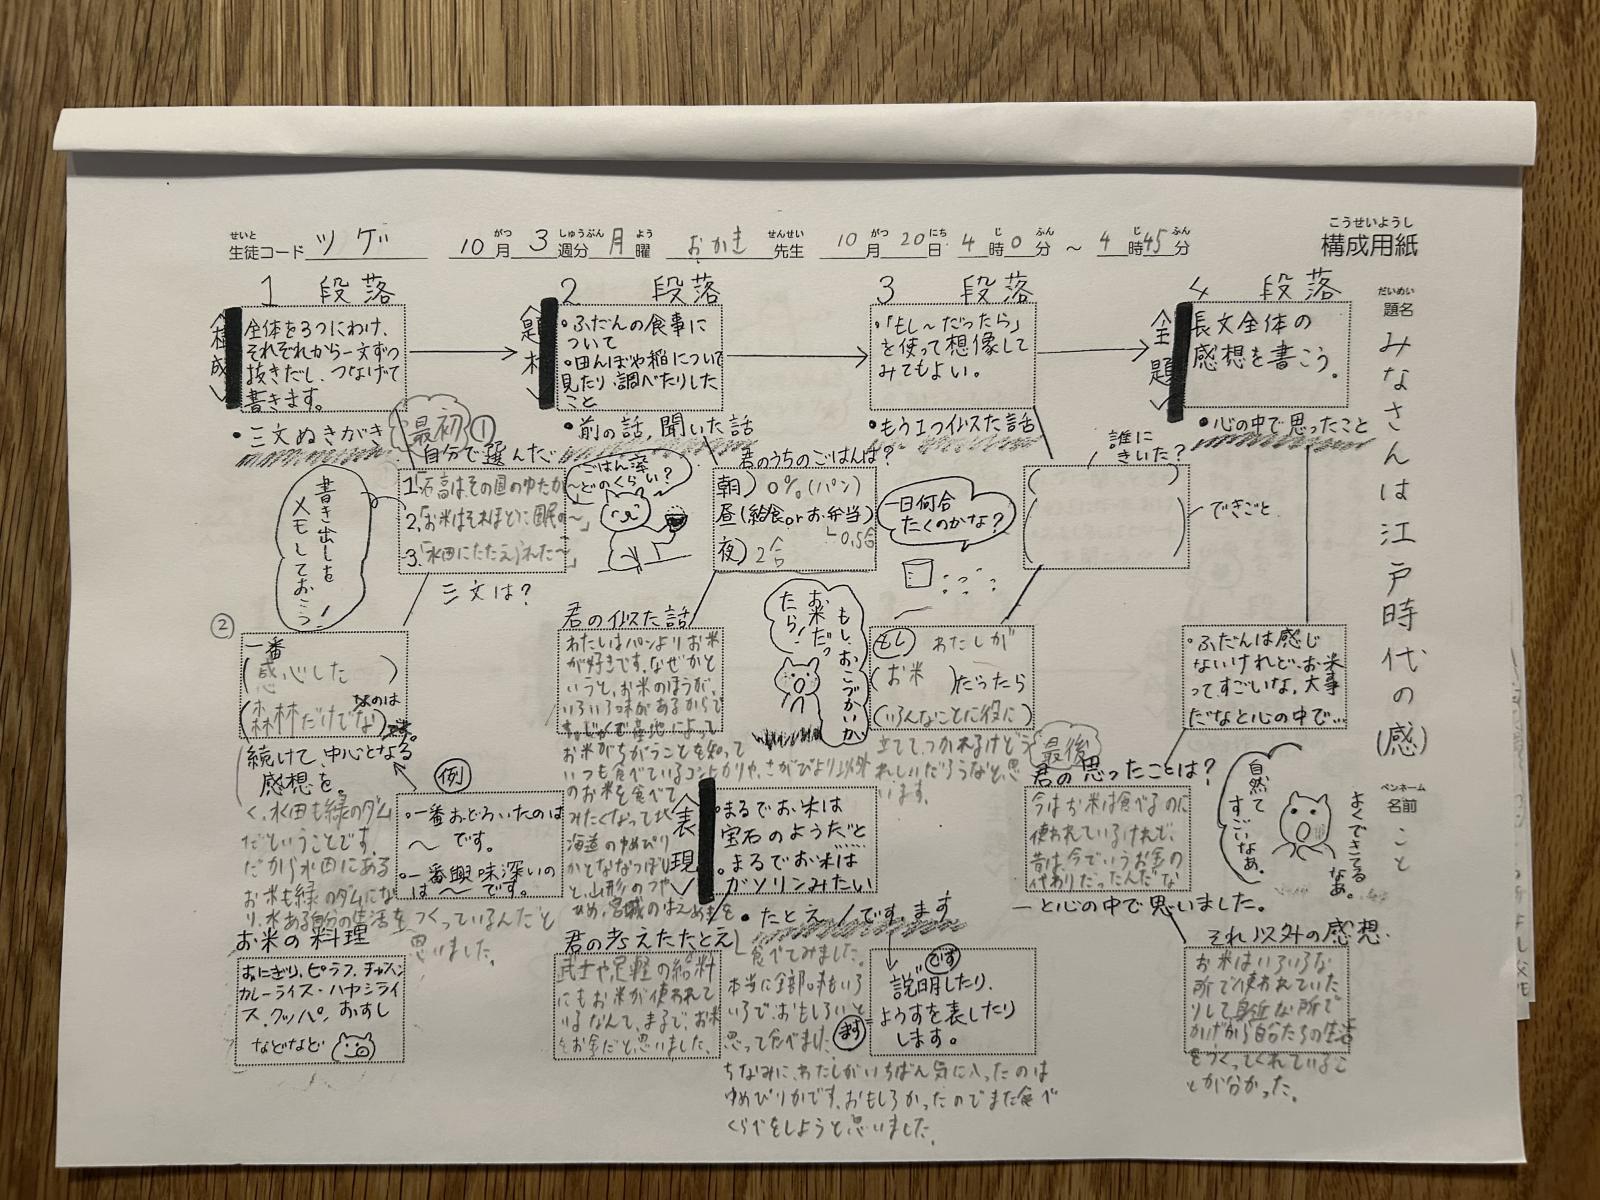 こうせいようし
構成用紙
せいと
生徒コード ツゲ
がつ しゅうぶん よう
10月 3週分 月曜
せんせい
おかき 先生
がつ にち じ ふん じ ふん
10月20日 4時0分 ~ 4時45分
だいめい
題名
みなさんは江戸時代の(感)
ペンネーム
名前 こと
1 段落
<構成>
全体を3つにわけ、
それぞれから一文ずつ
抜きだし、つなげて
書きます。
・三文ぬきがき
最初①
自分で選んだ
書き出しを
メモしておこう!
1.「石高はその国のゆたか
2.「お米はそれほどに国民の〜」
3.「水田にたたえられた〜
三文は?
②
一番
(感心した )
(森林だけでな)
なのは
です。
続けて、中心となる
感想を。
く、水田も緑のダム
だということです。
だから水田にある
お米も緑のダムにな
り、水ある自分の生活を
つくっているんだと
思いました。
例
・一番おどろいたのは
〜です。
・一番興味深いの
は〜です。
お米の料理
おにぎり、ピラフ、チャーハン
カレーライス・ハヤシライ
ス、クッパ、おすし
などなど
2 段落
<題材>
・ふだんの食事に
ついて
・田んぼや稲について
見たり、調べたりした
こと
・前の話、聞いた話
ごはん率
〜どのくらい?
君のうちのごはんは?
朝) 0%(パン)
昼(給食orお弁当)
0.5合
夜) 2合
一日何合
たくのかな?
君の似た話
わたしはパンよりお米
が好きです。なぜかと
いうと、お米のほうが、
いろいろ味があるからで
す。じゅくで産地によって
お米がちがうことを知って
いつも食べているコシヒカリや、さがびより以外
のお米を食べて
みたくなって北
海道のゆめぴり
かとななつぼし
と、山形のつや
ひめ、宮城のはえぬきを
食べてみました。
本当に全部味もいろ
いろで、おもしろいと
思って食べました。
ちなみに、わたしがいちばん気に入ったのは
ゆめぴりかです。おもしろかったのでまた食べ
くらべをしようと思いました。
<表現>
・まるでお米は
宝石のようだと
・まるでお米は
ガソリンみたい
・たとえ/です、ます
君の考えたたとえ
武士や足軽の給料
にもお米が使われて
いるなんて、まるで、お米
をお金だと、思いました。
です
ます
説明したり、
ようすを表したり
します。
3 段落
・「もし〜だったら」
を使って想像して
みてもよい。
・もう1つ似た話
誰に
きいた?
できごと
もし、おこづかいが
お米だっ
たら!
もし わたしが
(お米 )だったら
(いろんなことに役に)
立てて、つかれるけどう
れしいだろうなと、思
います。
4 段落
<全題>
長文全体の
感想を書こう。
・心の中で思ったこと
・ふだんは感じ
ないけれど、お米
ってすごいな。大事
だなと心の中で…
最後
君の思ったことは?
今はお米は食べるのに
使われているけれど、
昔は今でいうお金の
代わりだったんだな
ーと心の中で思いました。
自然て
すごいなあ。
よくできてる
なあ。
それ以外の感想
お米はいろいろな
所で使われていた
りして身近な所で
かげから自分たちの生活
をつくってくれているこ
とが分かった。